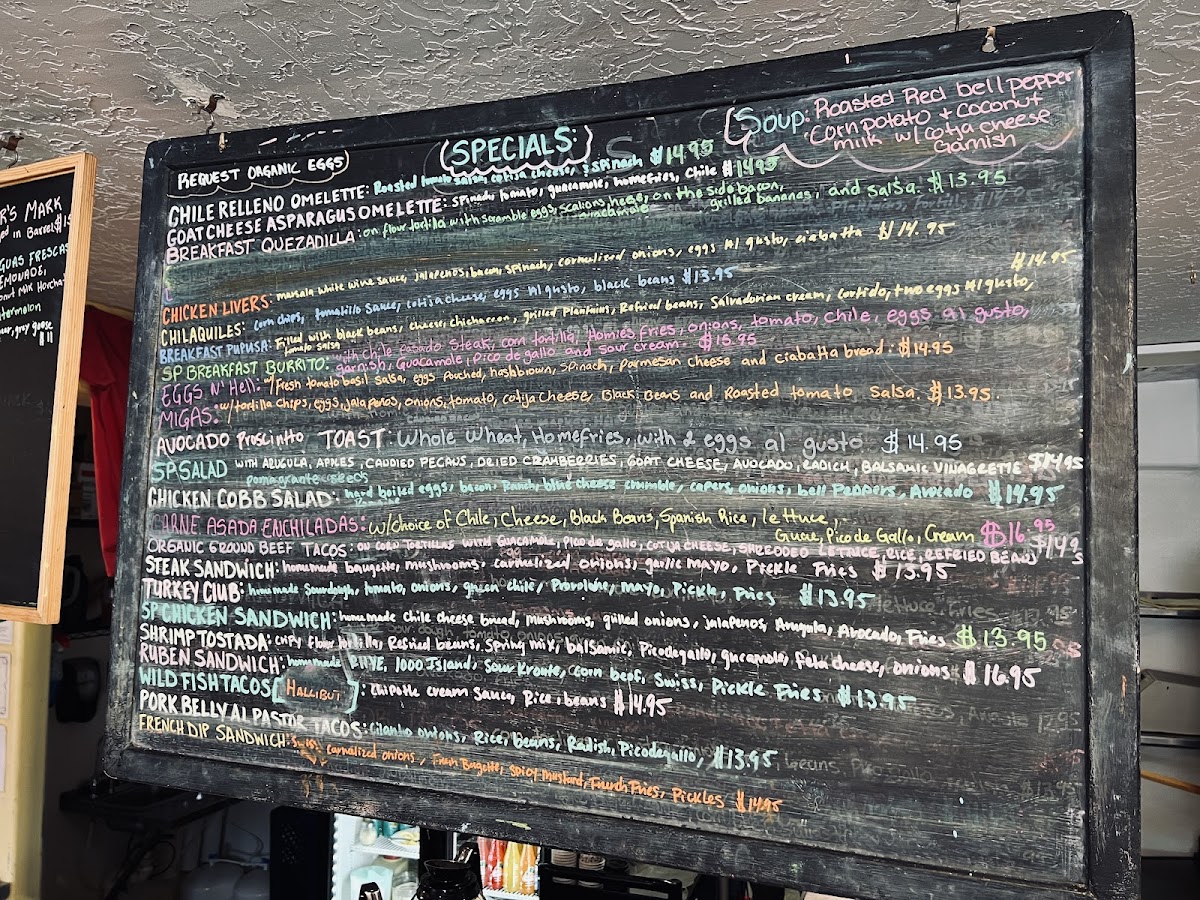 R'S MARK
ged in Barrel $1
GUAS FRESCAS
EMONADE,
onut Milk Horchat
termelon
grey goose
$11
REQUEST ORGANIC EGGS
SPECIALS:
Soup: Roasted Red bell pepper
Corn potato + coconut
milk w/cotija cheese
Garnish
CHILE RELLENO OMELETTE: Roasted tomato salsa, cotija cheese, spinach $14.95
GOAT CHEESE ASPARAGUS OMELETTE: spinach tomato, guacamole, homefries, Chile $14.95
BREAKFAST QUEZADILLA: on flour tortilla with scramble eggs, scalions, on the side bacon, grilled bananas, and salsa. $13.95
guacamole
CHICKEN LIVERS: marsala white wine sauce, jalapenos, bacon, spinach, carnalized onions, eggs Al gusto, ciabatta $14.95
CHILAQUILES: corn chips, tomatillo Sauce, cotija cheese, eggs Al gusto, black beans $13.95
BREAKFAST PUPUSA: Filled with black beans, cheese, chicharron, grilled Plantains, Refried beans, Salvadorian cream, cortido, two eggs Al gusto, $14.95
tomato salsa
SP BREAKFAST BURRITO: with chile asado steak, corn tortilla, Homies Fries, onions, tomato, chile, eggs al gusto,
garnish, Guacamole, pico de gallo and sour cream. $15.95
EGGS N' Hell: w/ Fresh tomato basil salsa, eggs pouched, hashbrown, spinach, parmesan cheese and ciabatta bread. $14.95
MIGAS: w/tortilla chips, eggs, jalapeños, onions, tomato, cotija cheese, Black Beans and Roasted tomato Salsa. $13.95.
AVOCADO Proscintto TOAST: Whole Wheat, Homefries, with 2 eggs al gusto. $14.95
SP SALAD WITH ARUGULA, APPLES, CANDIED PECANS, DRIED CRANBERRIES, GOAT CHEESE, AVOCADO, RADICH, BALSAMIC VINAGRETTE $14.95
pomagranate seeds
CHICKEN COBB SALAD: hard boiled eggs, bacon, Ranch, blue cheese crumble, capers, onions, bell Peppers, Avocado $14.95
CARNE ASADA ENCHILADAS: w/choice of Chile, Cheese, Black Beans, Spanish Rice, lettuce,
Guac, Pico de Gallo, Cream $16.95
ORGANIC GROUND BEEF TACOS: ON CORN TORTILLAS WITH GUACAMOLE, PICO de gallo, COTIJA CHEESE, SHREDDED LETTUCE, RICE, REFRIED BEANS $14.95
STEAK SANDWICH: homemade baugette, mushrooms, carnelized onions, garlic mayo, Pickle Fries $13.95
TURKEY CLUB: homemade Sourdough, tomato, onions, green chile, Provolone, mayo, Pickle, Fries $13.95
SP CHICKEN SANDWICH: homemade chile cheese bread, mushrooms, grilled onions, jalapeños, Arugula, Avocado, Fries $13.95
SHRIMP TOSTADA: crispy flour tortilla, Refried beans, Spring mix, balsamic, Picodegallo, guacamole, feta cheese, onions $16.95
RUBEN SANDWICH: homemade RHYE, 1000 Island, Sour Kroute, corn beef, Swiss, Pickle Fries $13.95
WILD FISH TACOS HALLIBUT: Chipotle cream Sauce, Rice, beans $14.95
PORK BELLY AL PASTOR TACOS: Cilantro onions, Rice, beans, Radish, Picodegallo, $13.95
FRENCH DIP SANDWICH: Swiss, Carnalized onions, Fresh Bagette, Spicy mustard, French Fries, Pickles $14.95